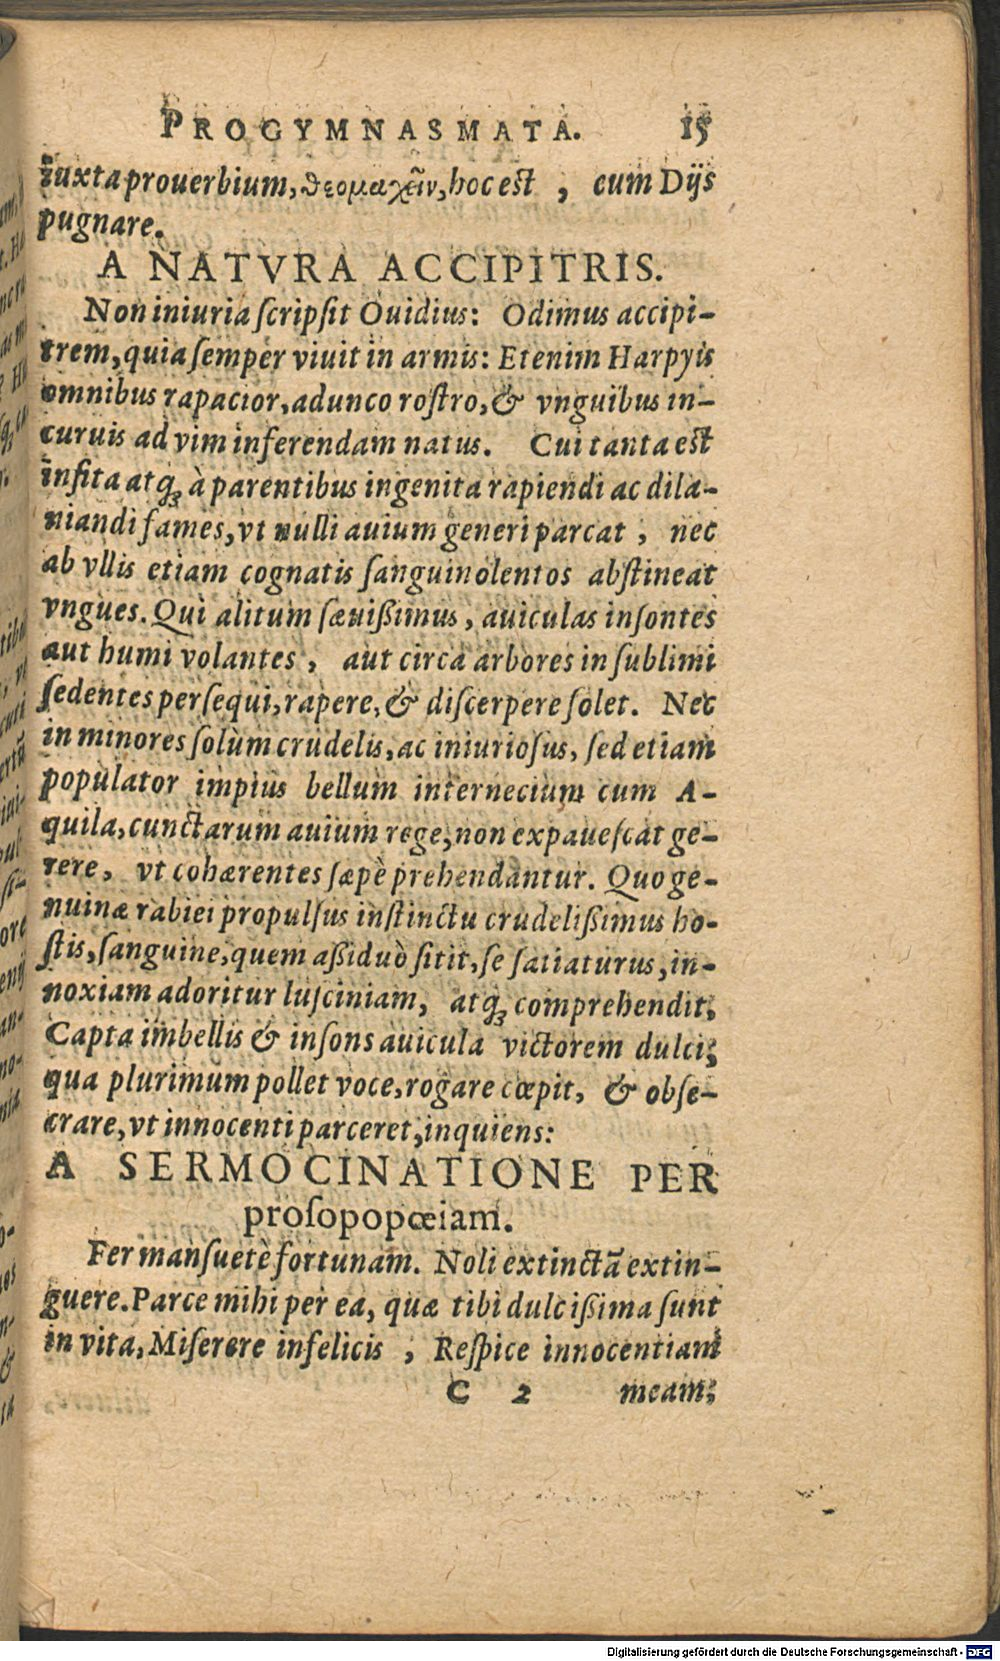 PROGYMNASMATA. 15
iuxta prouerbium, θεομαχεῖν, hoc est , cum Dijs
pugnare.
A NATVRA ACCIPITRIS.
Non iniuria ſcripſit Ouidius: Odimus accipi-
trem, quia ſemper viuit in armis: Etenim Harpyis
omnibus rapacior, adunco roſtro, & vnguibus in-
curuis ad vim inferendam natus. Cui tanta est
inſita atqꝫ à parentibus ingenita rapiendi ac dila-
niandi fames, vt nulli auium generi parcat , nec
ab vllis etiam cognatis ſanguinolentos abſtineat
vngues. Qui alitum ſæuißimus, auiculas inſontes
aut humi volantes , aut circa arbores in ſublimi
ſedentes perſequi, rapere, & diſcerpere ſolet. Nec
in minores ſolùm crudelis, ac iniurioſus, ſed etiam
populator impius bellum internecium cum A-
quila, cunctarum auium rege, non expaueſcat ge-
rere, vt cohærentes ſæpè prehendantur. Quo ge-
nuinæ rabiei propulſus inſtinctu crudelißimus ho-
ſtis, ſanguine, quem aßiduò ſitit, ſe ſatiaturus, in-
noxiam adoritur luſciniam, atqꝫ comprehendit;
Capta imbellis & inſons auicula victorem dulci;
qua plurimum pollet voce, rogare cœpit, & obſe-
crare, vt innocenti parceret, inquiens:
A SERMOCINATIONE PER
proſopopœiam.
Fer manſuetè fortunam. Noli extinctã extin-
guere. Parce mihi per ea, quæ tibi dulcißima ſunt
in vita, Miſerere infelicis , Reſpice innocentiam
C 2 meam;
Digitalisierung gefördert durch die Deutsche Forschungsgemeinschaft - DFG